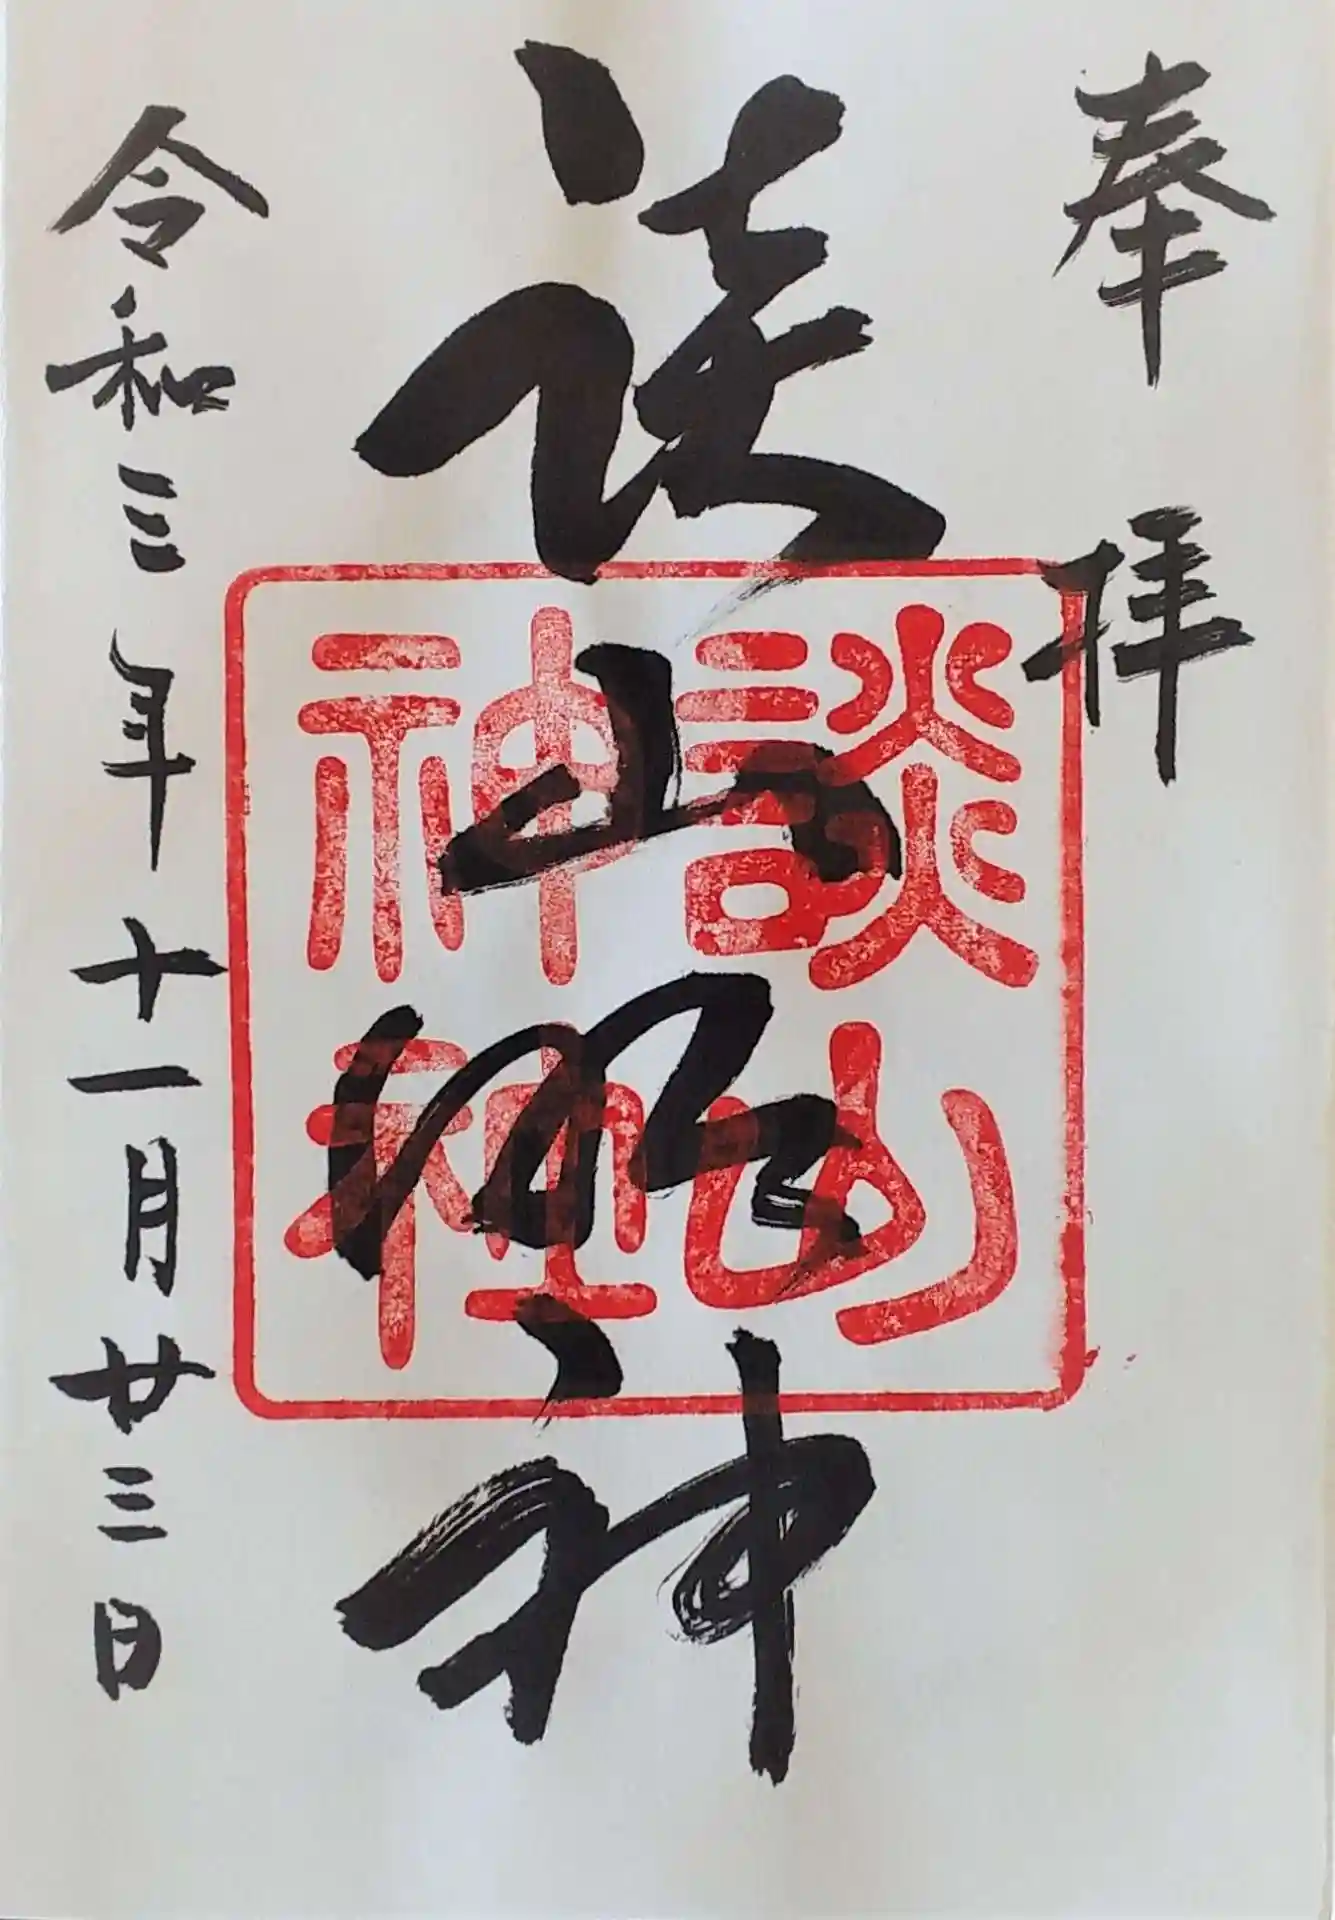 奉拝
談山明神
談山
神社
令和三年十一月廿三日